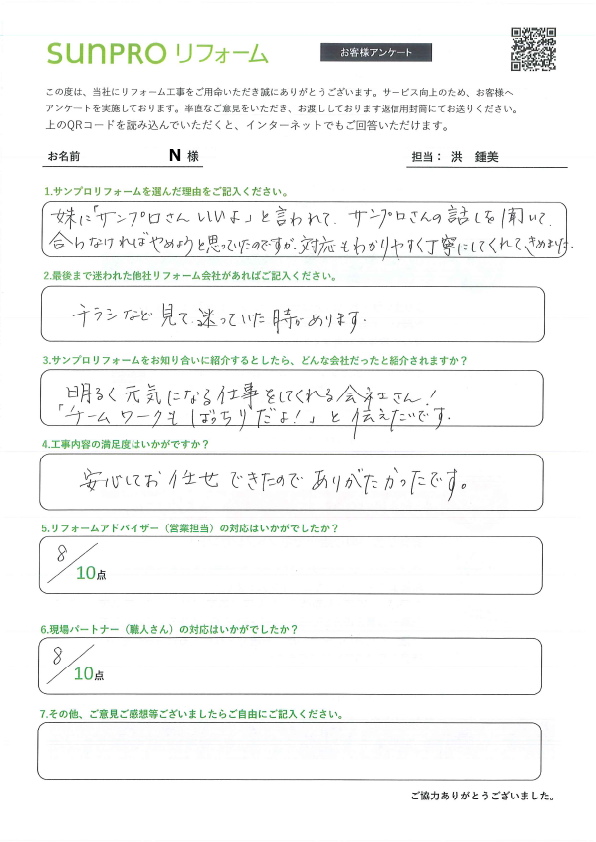 sunpro リフォーム
お客様アンケート
この度は、当社にリフォーム工事をご用命いただき誠にありがとうございます。サービス向上のため、お客様へ
アンケートを実施しております。率直なご意見をいただき、お渡ししております返信用封筒にてお送りください。
上のQRコードを読み込んでいただくと、インターネットでもご回答いただけます。
お名前 N 様
担当： 洪 鍾美
1.サンプロリフォームを選んだ理由をご記入ください。
妹に「サンプロさんいいよ」と言われて、サンプロさんの話しを聞いて、
合わなければやめようと思っていたのですが、対応もわかりやすく丁寧にしてくれて、きめました。
2.最後まで迷われた他社リフォーム会社があればご記入ください。
チラシなど見て、迷っていた時があります。
3.サンプロリフォームをお知り合いに紹介するとしたら、どんな会社だったと紹介されますか？
明るく元気になる仕事をしてくれる会社さん！
「チームワークもばっちりだよ！」と伝えたいです。
4.工事内容の満足度はいかがですか？
安心してお任せできたのでありがたかったです。
5.リフォームアドバイザー（営業担当）の対応はいかがでしたか？
8/10点
6.現場パートナー（職人さん）の対応はいかがでしたか？
8/10点
7.その他、ご意見ご感想等ございましたらご自由にご記入ください。
ご協力ありがとうございました。